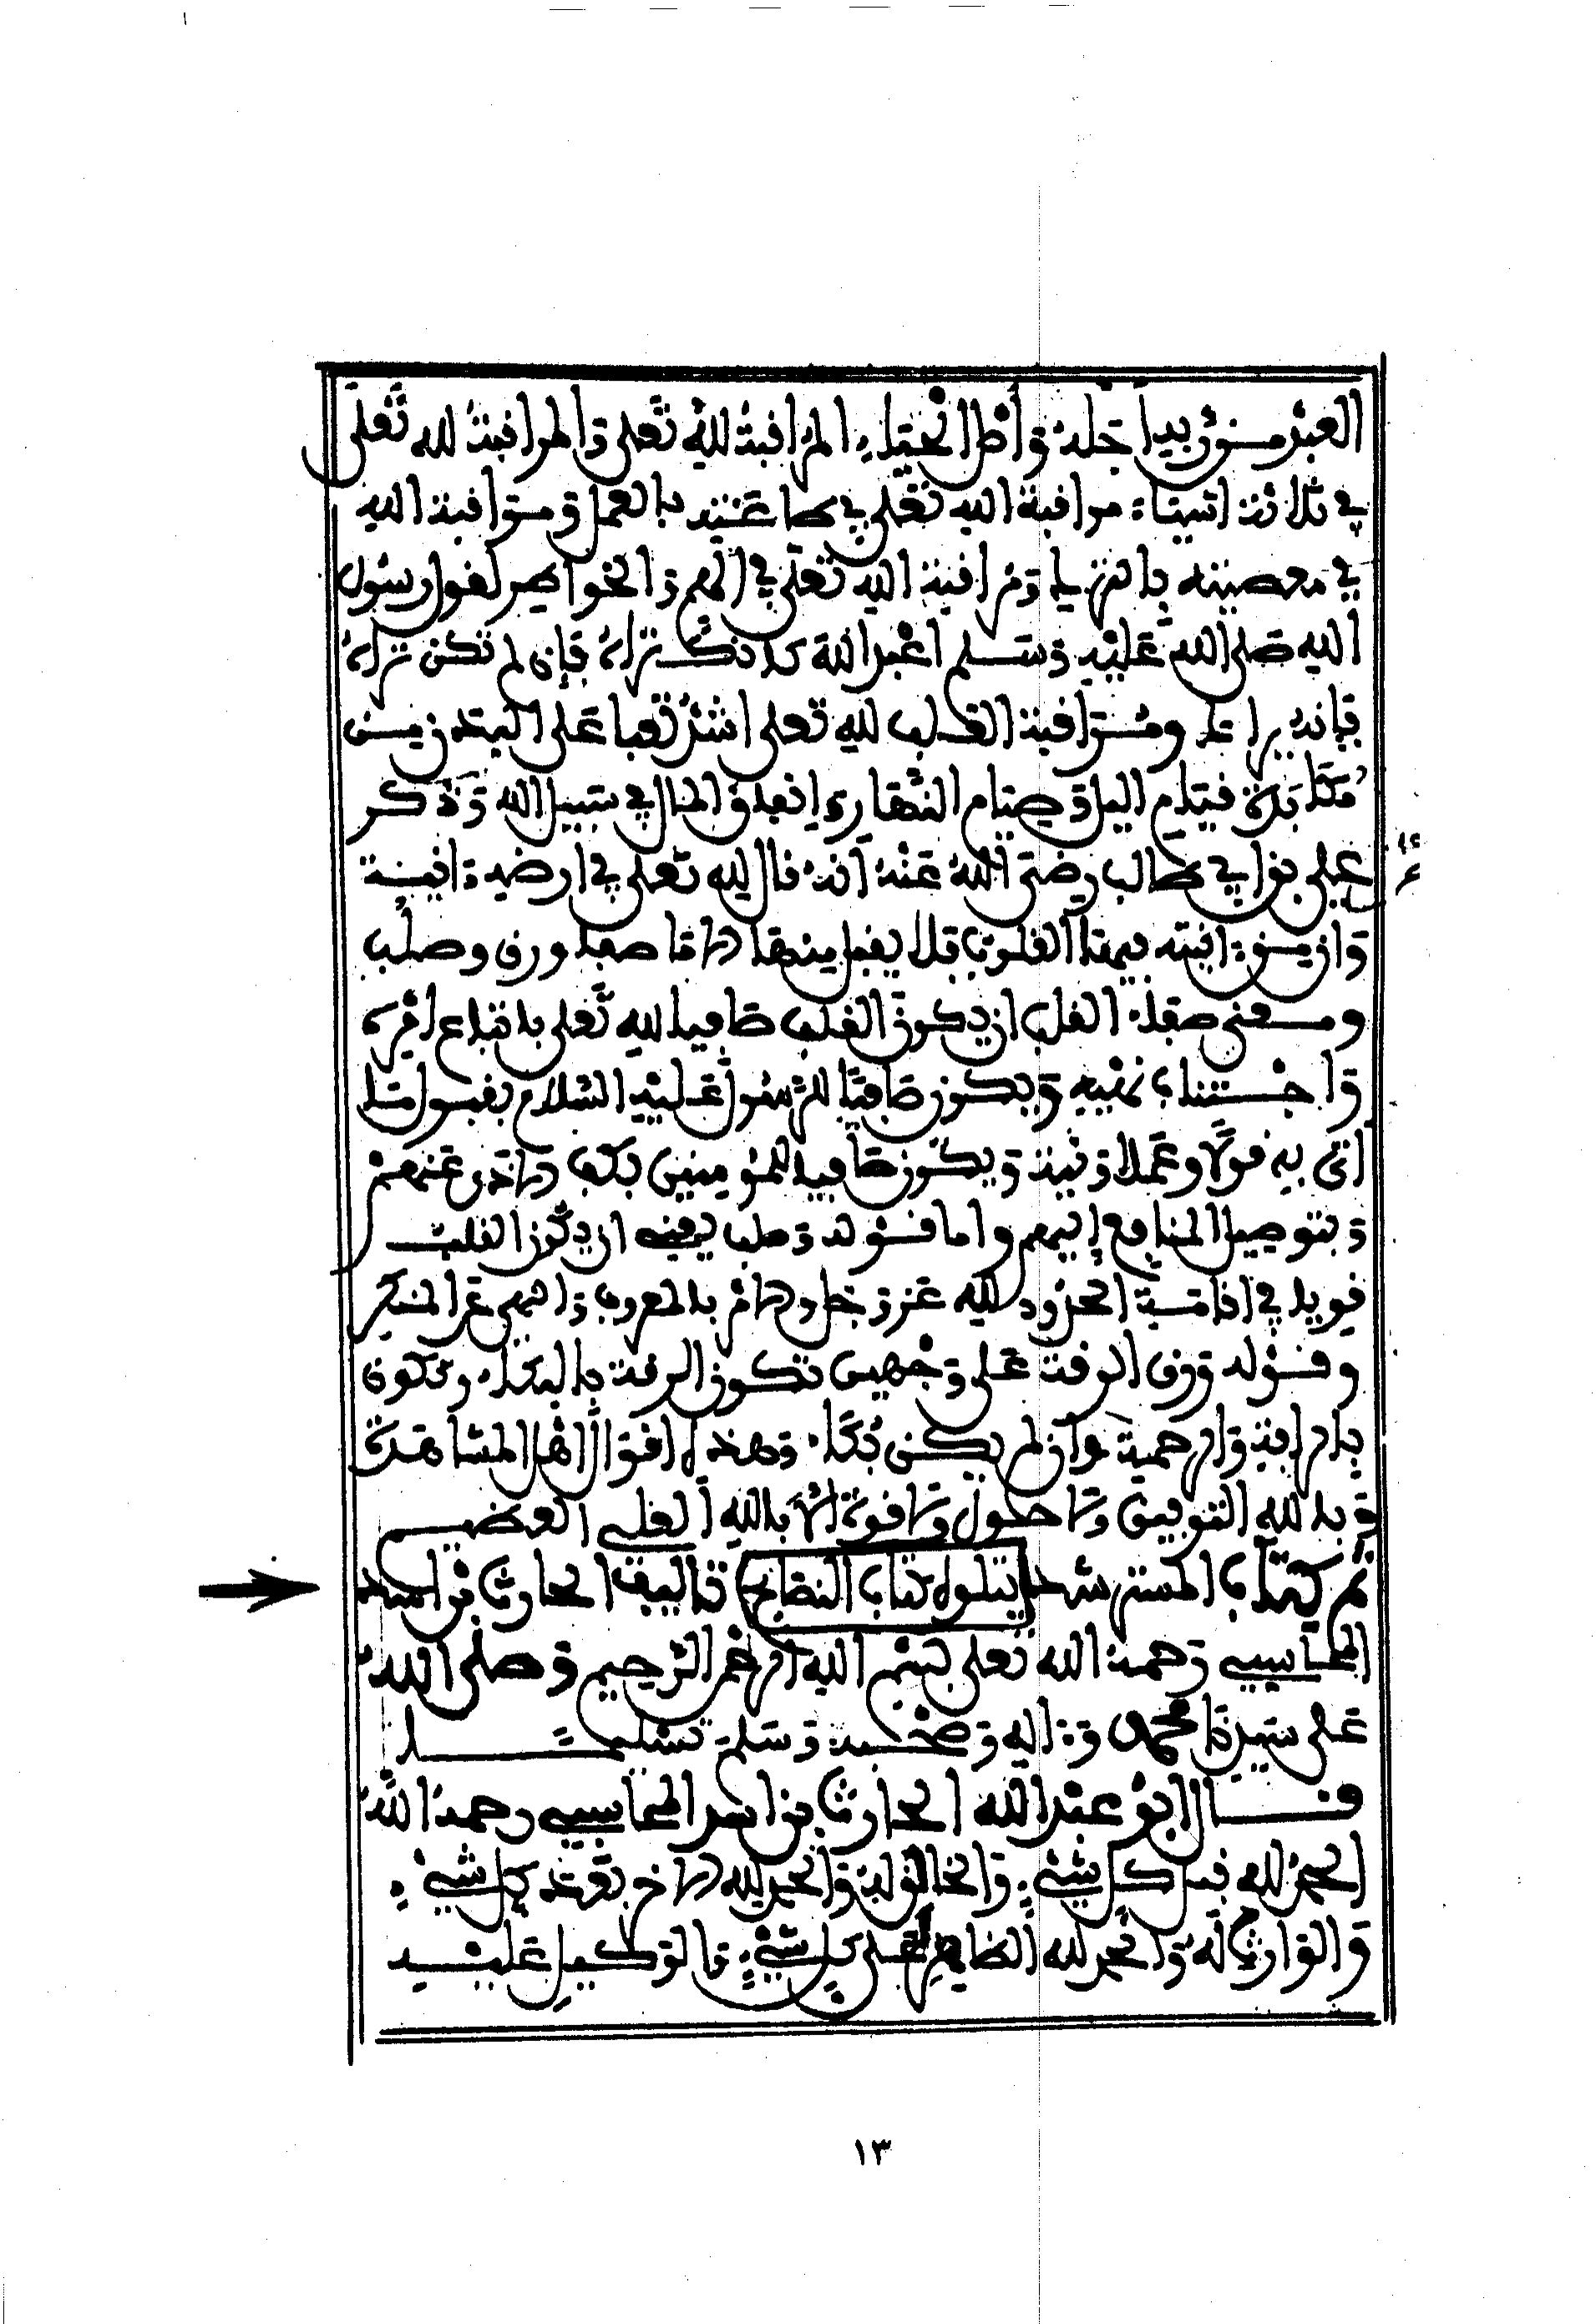 العبد مسؤول به اجله وأصل الحياء المراقبة لله تعلى والمراقبة لله تعلى
في ثلاثة اشياء مراقبة الله تعلى في طاعته بالعمل ومراقبة الله
في معصيته بالترك ومراقبة الله تعلى في الهم والخواطر لقول رسول
الله صلى الله عليه وسلم اعبد الله كانك تراه فإن لم تكن تراه
فإنه يراك ومراقبة القلب لله تعلى اشد تعبا على البدن من
مكابدة قيام اليل وصيام النهار وإنفاق المال في سبيل الله وذكر
علي بن أبي طالب رضي الله عنه انه قال لله تعلى في ارضه ءانية
وان من ءانيته فيها القلوب فلا يقبل منها الا ما صفا ورق وصلب
ومعنى صفاء القلب ان يكون القلب صافيا لله تعلى باتباع امره
واجتناب نهيه ويكون صافيا للرسول عليه السلام بقبول ما
اتى به قولا وعملا ونية ويكون صافيا للمؤمنين بكف الاذى عنهم
وبتوصيل المنافع إليهم واما قوله وصلب يعني ان يكون القلب
قويا في اقامة الحدود لله عز وجل والامر بالمعروف والنهي عن المنكر
وقوله ورق الرقة على وجهين تكون الرقة بالبكاء وتكون
بالرافة والرحمة وان لم يكن بكاء وهذه اقوال اهل المشاهدة
وبالله التوفيق ولا حول ولا قوة إلا بالله العلي العظيم
تم كتاب المسترشد يتلوه كتاب النصايح تاليف الحارث بن اسد
المحاسبي رحمه الله تعلى بسم الله الرحمن الرحيم وصلى الله
على سيدنا محمد وءاله وصحبه وسلم تسليما
قال ابو عبد الله الحارث بن اسد المحاسبي رحمه الله
الحمد لله قبل كل شيء والخالق له والحمد لله الاخر بعد كل شيء
والوارث له والحمد لله الظاهر على كل شيء والوكيل عليه
١٣